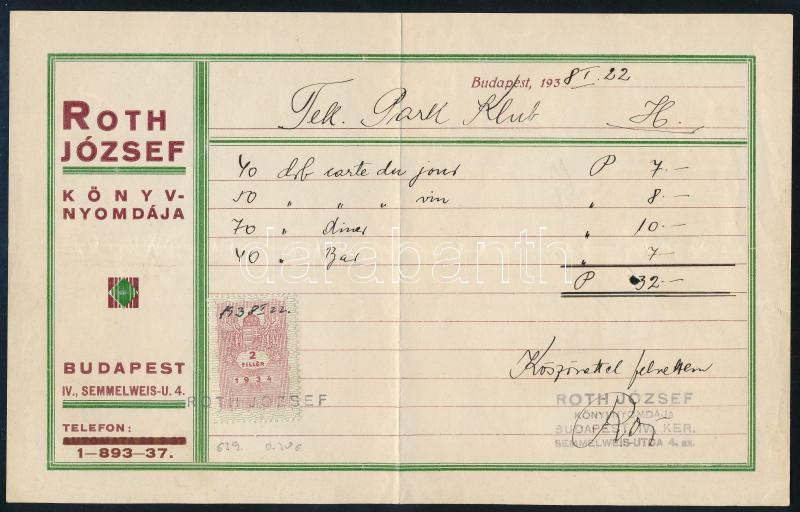 ROTH
JÓZSEF
KÖNYV-
NYOMDÁJA
BUDAPEST
IV., SEMMELWEIS-U. 4.
TELEFON:
1-893-37.
Budapest, 1938 I. 22
Tek. Park Klub H.
40 drb carte du jour P 7.-
50 „ „ „ vin „ 8.-
70 „ diner „ 10.-
40 „ Bar „ 7-
P 32.-
1938 I 22.
2
FILLÉR
1934
ROTH JÓZSEF
Köszönettel felvettem
ROTH JÓZSEF
KÖNYVNYOMDÁJA
BUDAPEST, IV. KER.
SEMMELWEIS-UTCA 4. sz.
darabanth